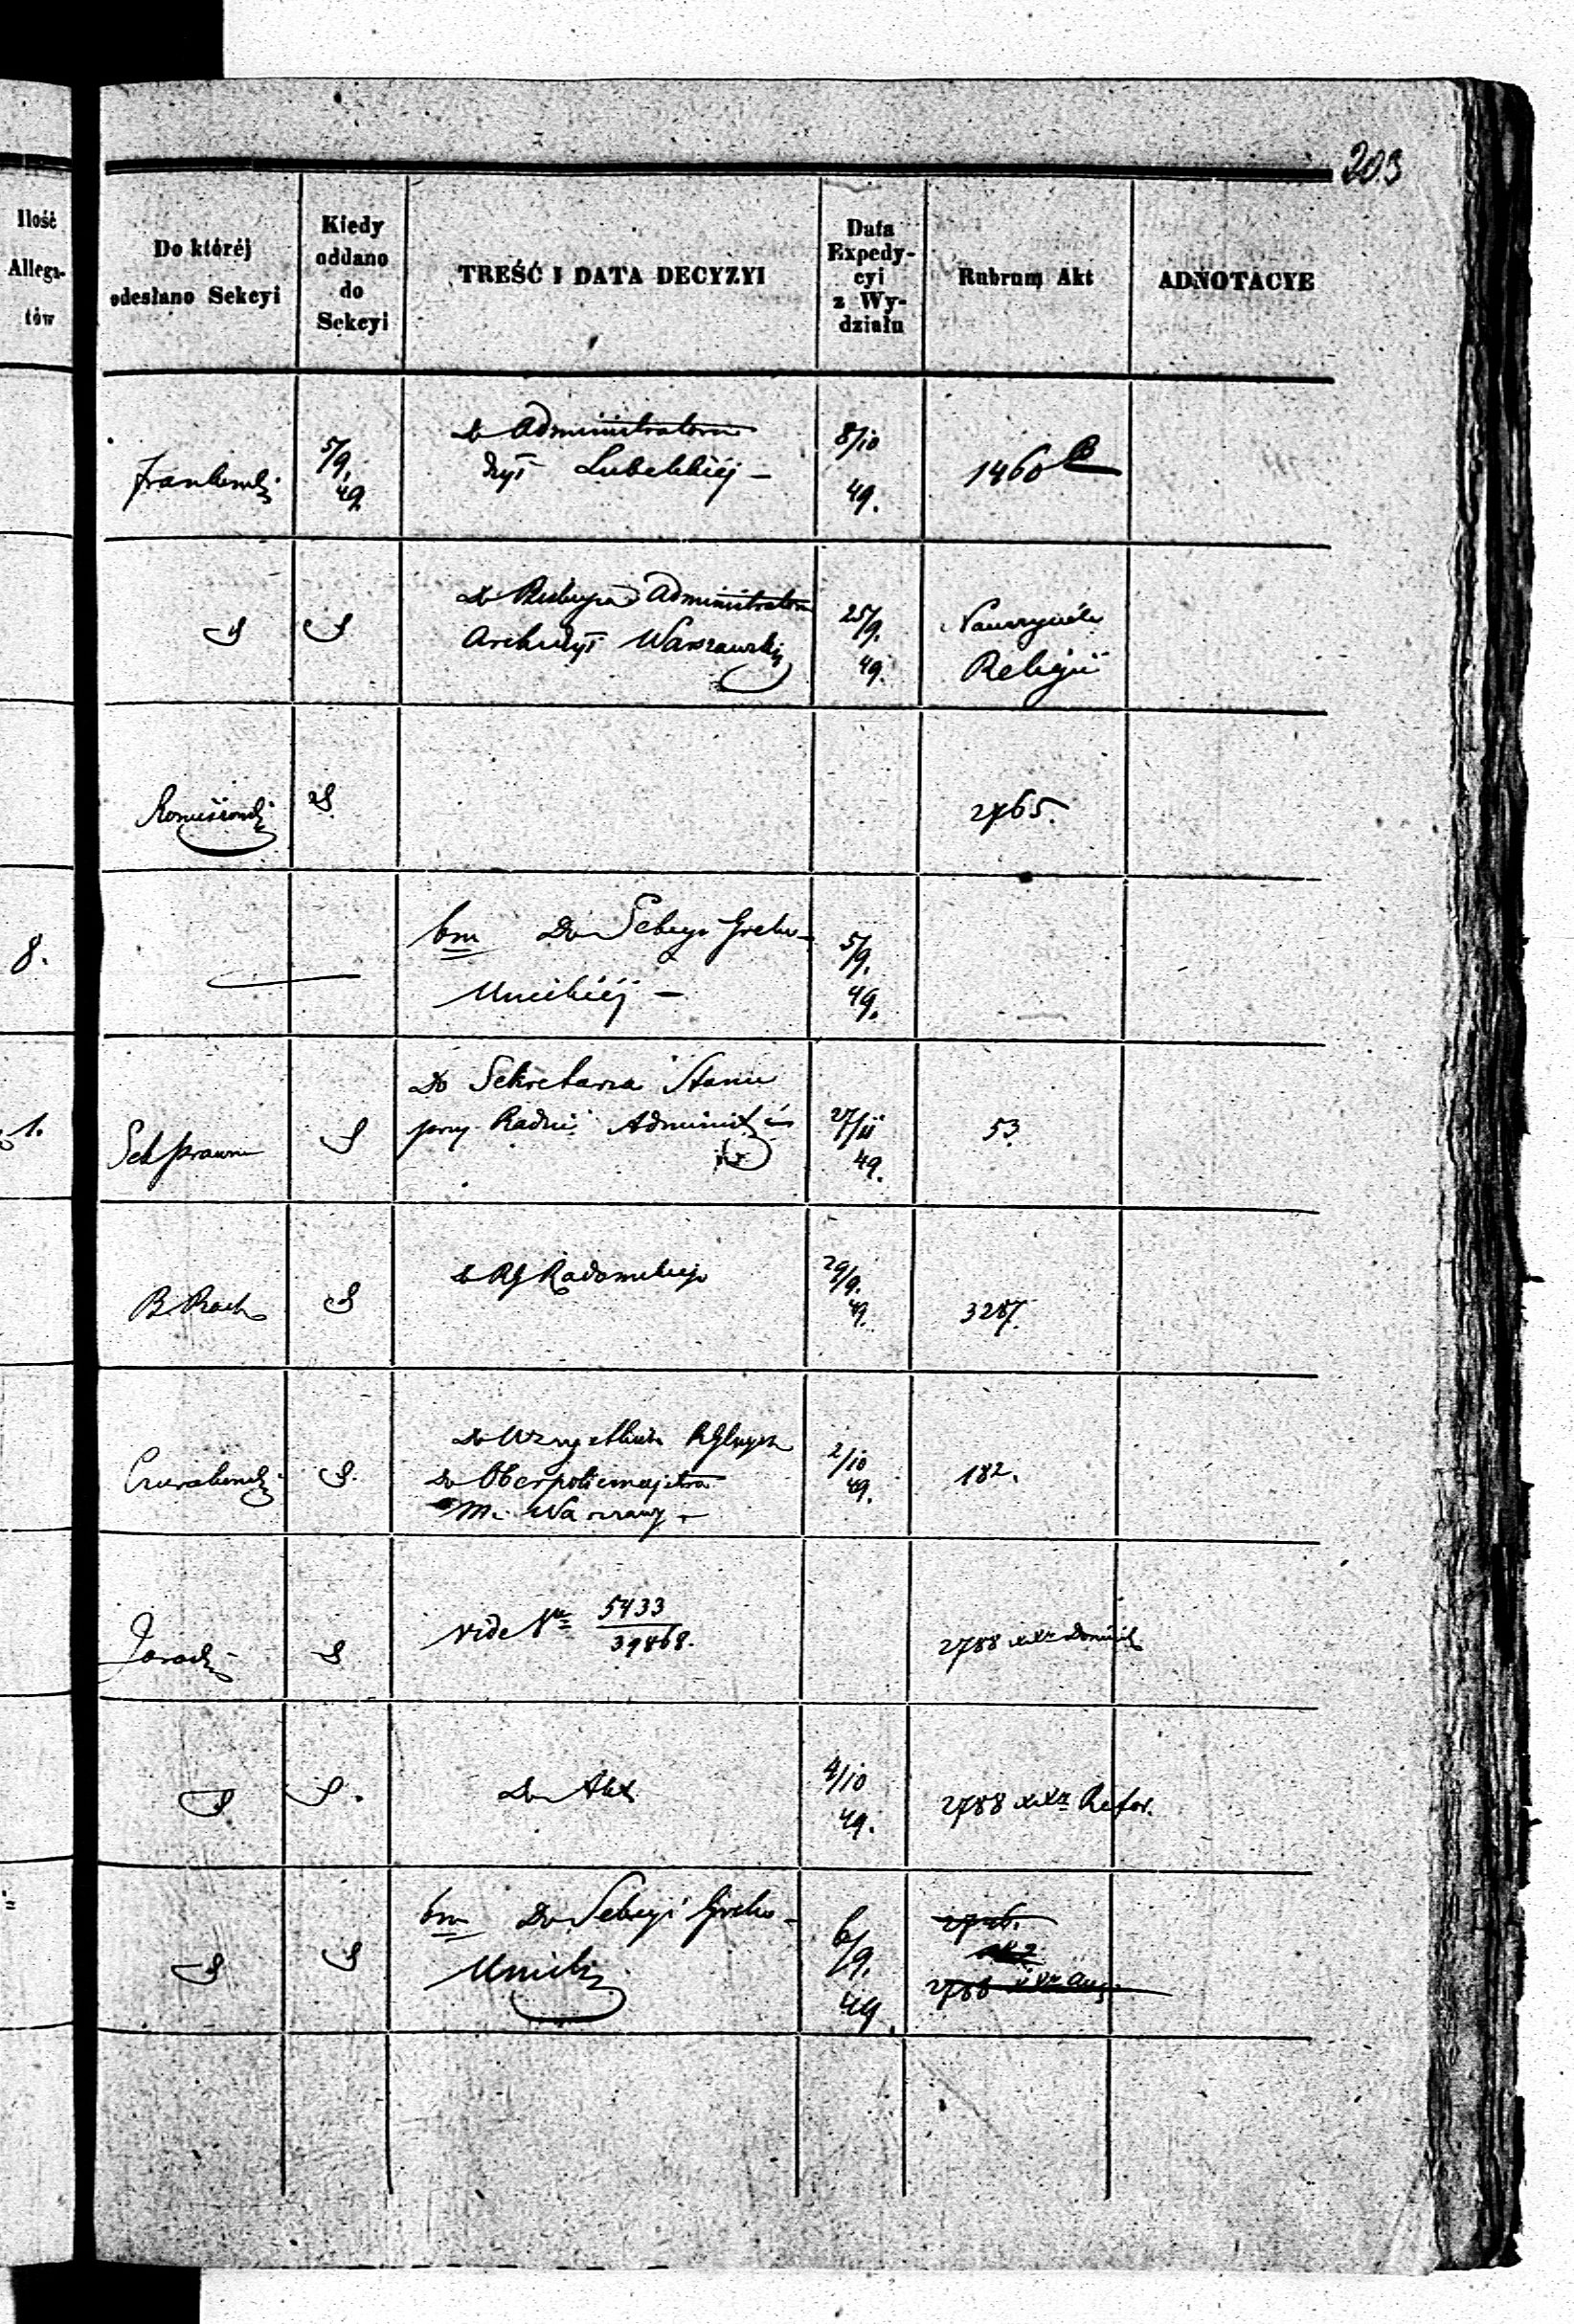 203
Ilość
Allega-
tów
Do któréj
odesłano Sekcyi
Kiedy
oddano
do
Sekcyi
TREŚĆ I DATA DECYZYI
Data
Expedy-
cyi
z Wy-
działu
Rubrum Akt
ADNOTACYE
5/9.
49.
Do Administratora
Dyi Lubelskiéj —
8/10
49.
1460 B
Do Biskupa Administratora
Archidyi Warszawskiej
25/9.
49.
Nauczyciele
Religii
2765.
8.
bm Do Sekcyi Grecko-
Unickiéj —
5/9.
49.
1.
Sek prawna
Do Sekretarza Stanu
przy Radzie Administr
27/11
49.
53.
Do RG Radomskiego
29/9.
49.
3287.
Do Wszystkich RGlnych
Do Oberpolicmajstra
M. Warszawy
2/10
49.
182.
vide Nr 5433
39868.
2788 xXr Dominik
Do Akt
4/10
49.
2788 xXr Refor.
bm Do Sekcyi Grecko-
Unickiej
6/9.
49.